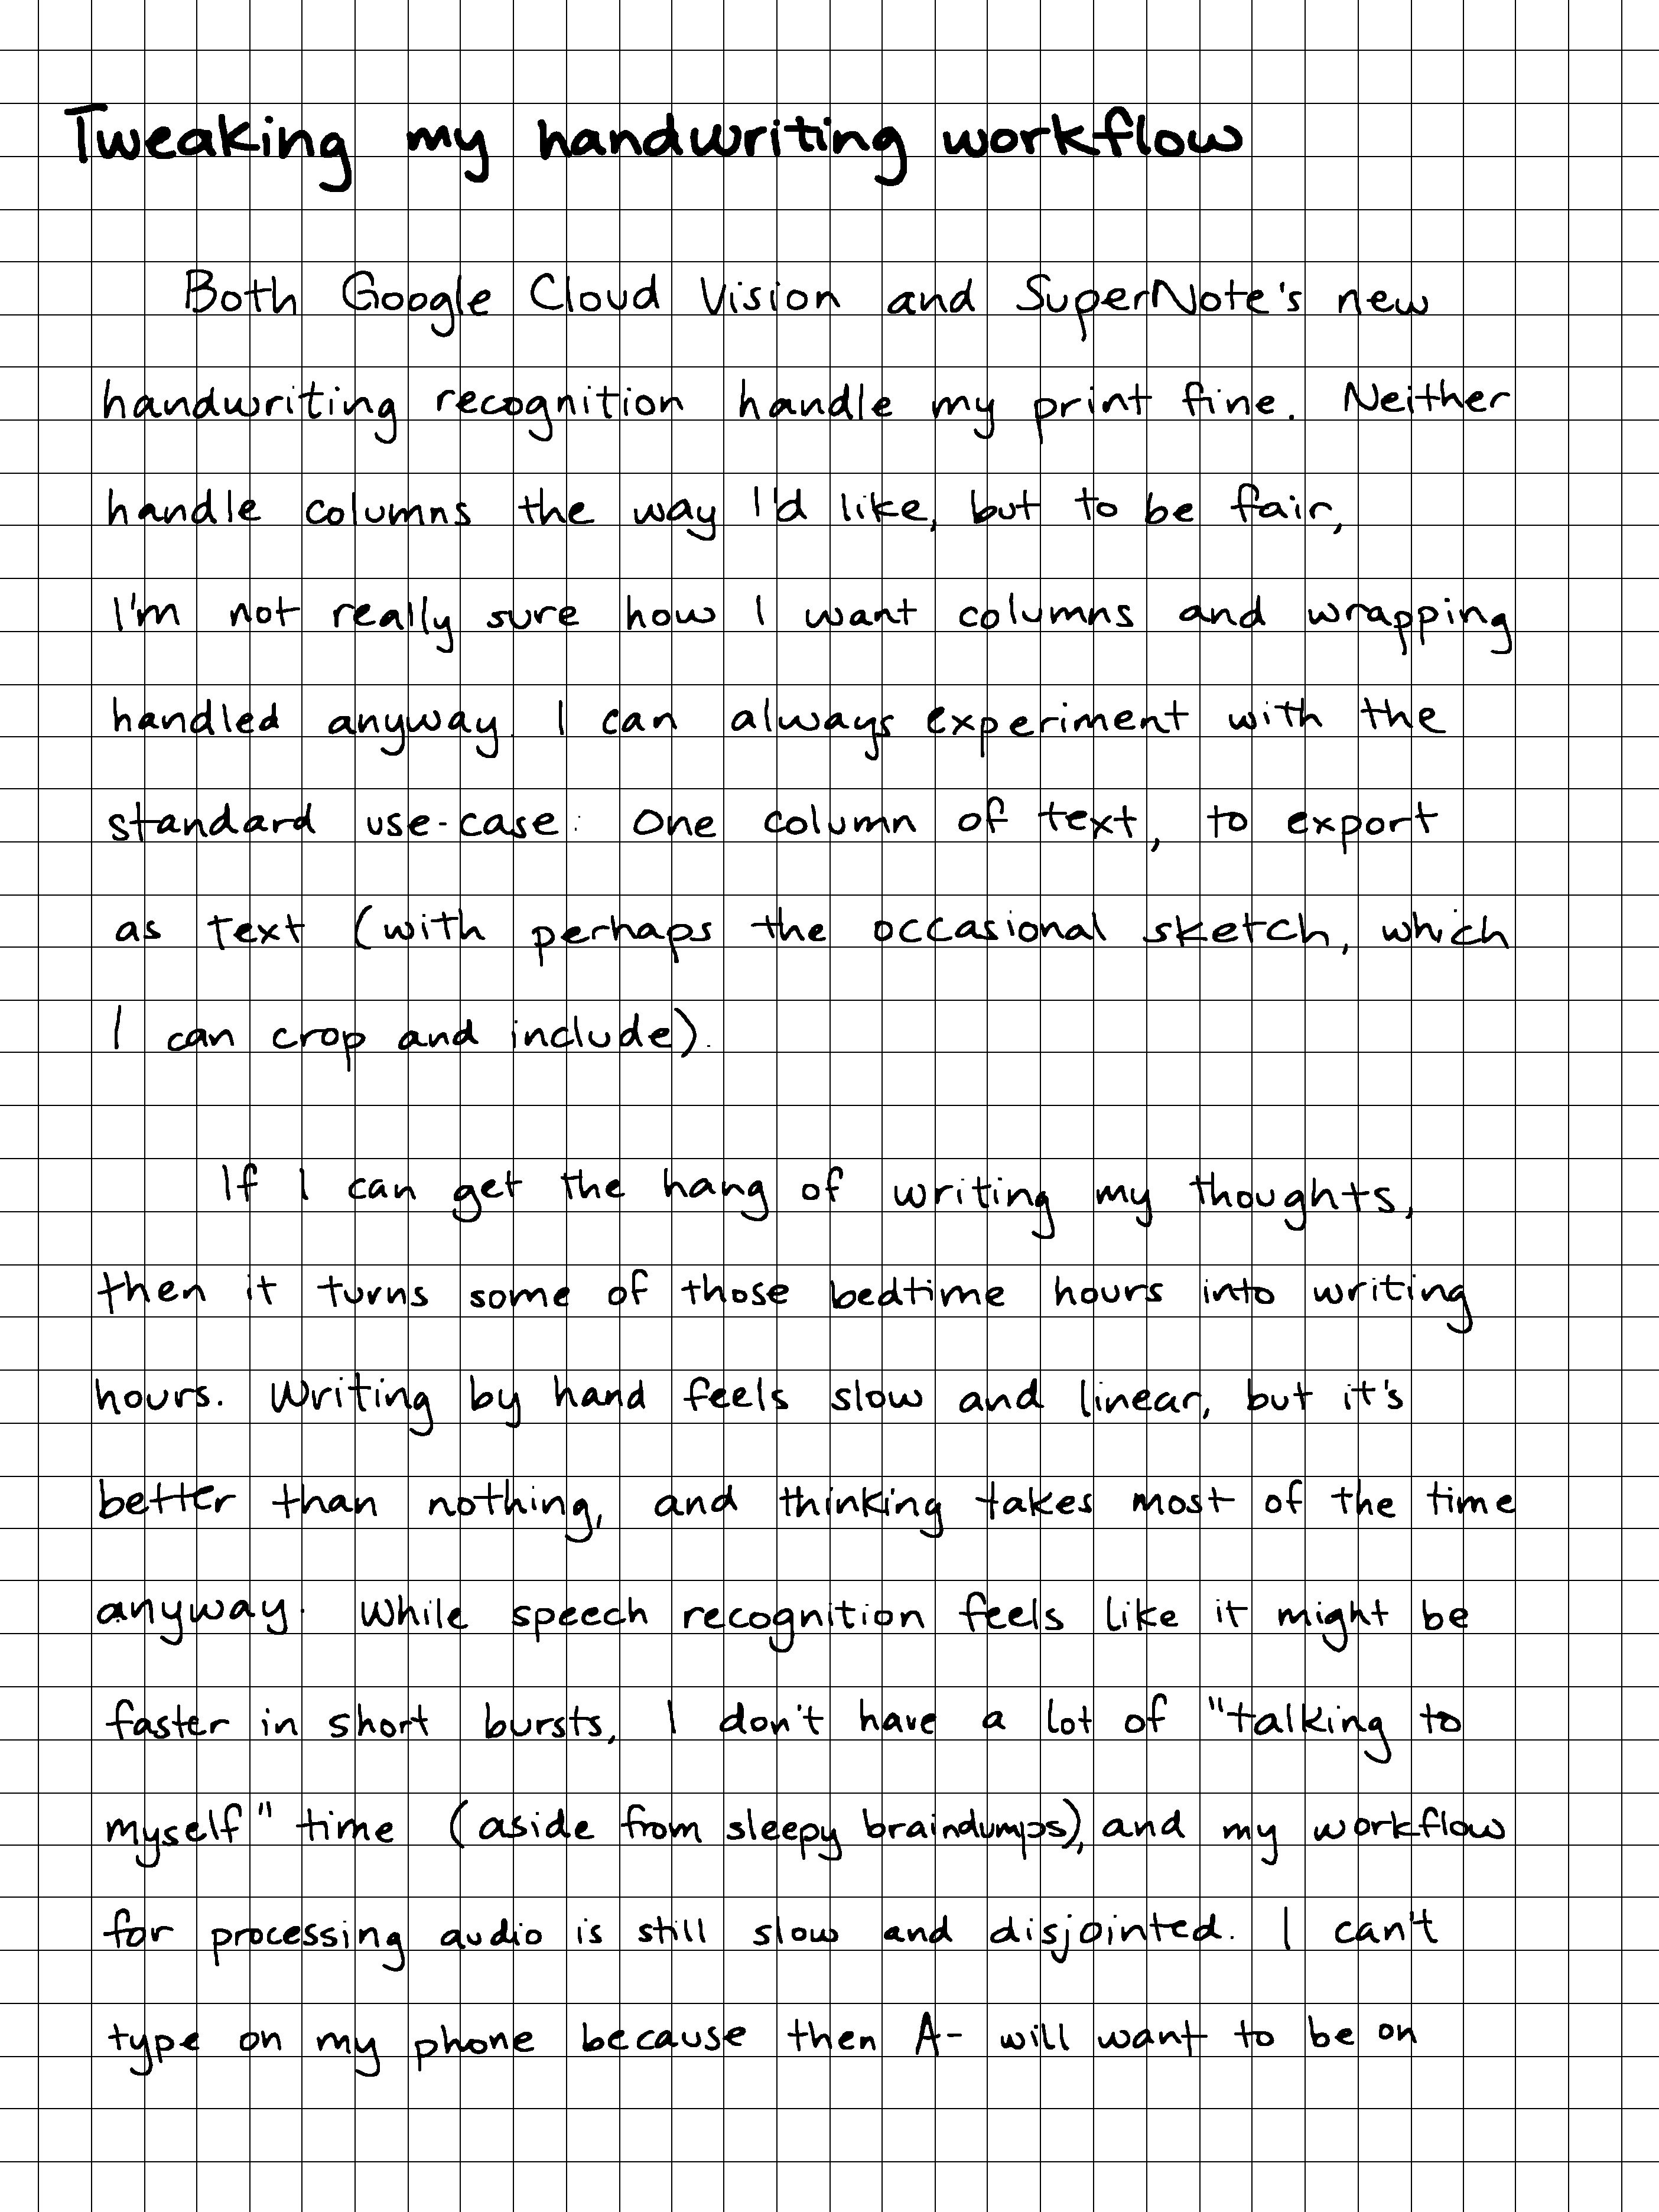 Tweaking my handwriting workflow
Both Google Cloud Vision and SuperNote's new
handwriting recognition handle my print fine. Neither
handle columns the way I'd like, but to be fair,
I'm not really sure how I want columns and wrapping
handled anyway. I can always experiment with the
standard use-case: one column of text, to export
as text (with perhaps the occasional sketch, which
I can crop and include).
If I can get the hang of writing my thoughts,
then it turns some of those bedtime hours into writing
hours. Writing by hand feels slow and linear, but it's
better than nothing, and thinking takes most of the time
anyway. While speech recognition feels like it might be
faster in short bursts, I don't have a lot of "talking to
myself" time (aside from sleepy braindumps), and my workflow
for processing audio is still slow and disjointed. I can't
type on my phone because then A- will want to be on